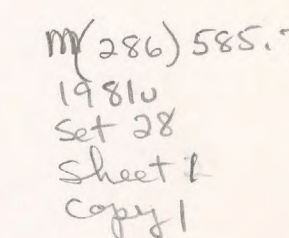 M(286) 585.
1981u
Set 28
Sheet 1
Copy 1